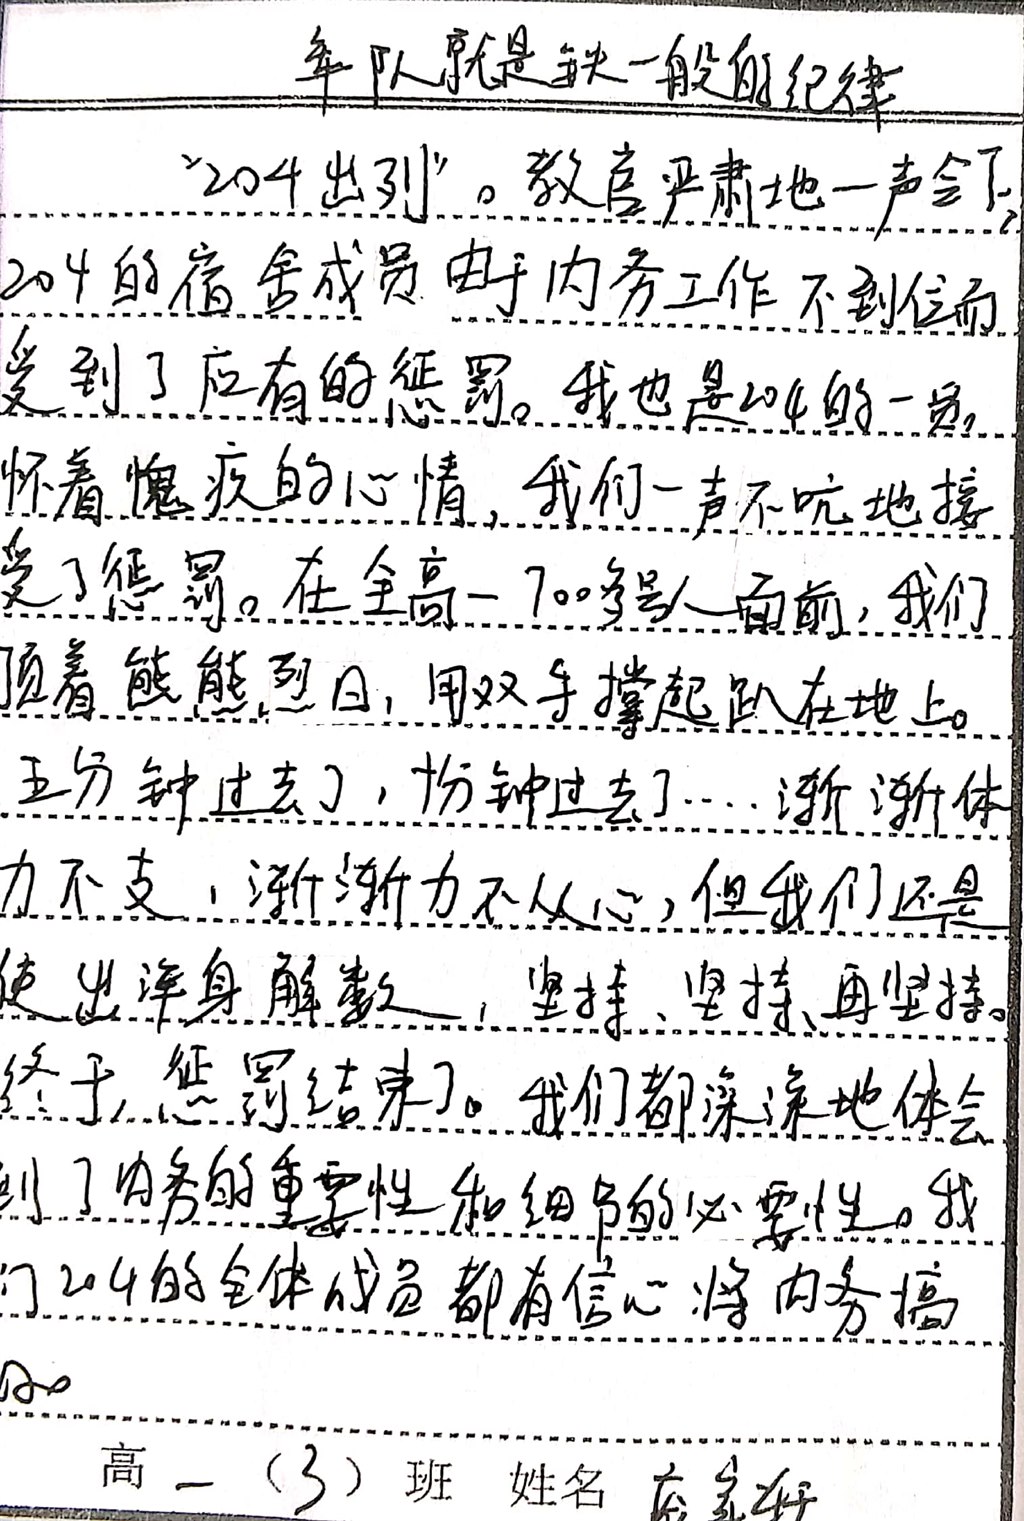 军队就是铁一般的纪律
"204出列"。教官严肃地一声令下,
204的宿舍成员由于内务工作不到位而
受到了应有的惩罚。我也是204的一员,
怀着愧疚的心情,我们一声不吭地接
受了惩罚。在全高一700多号人面前,我们
顶着熊熊烈日,用双手撑起趴在地上。
五分钟过去了,十分钟过去了....渐渐体
力不支,渐渐力不从心,但我们还是
使出浑身解数,坚持、坚持、再坚持。
终于,惩罚结束了。我们都深深地体会
到了内务的重要性和细节的必要性。我
们204的全体成员都有信心将内务搞
好。
高一(3)班 姓名